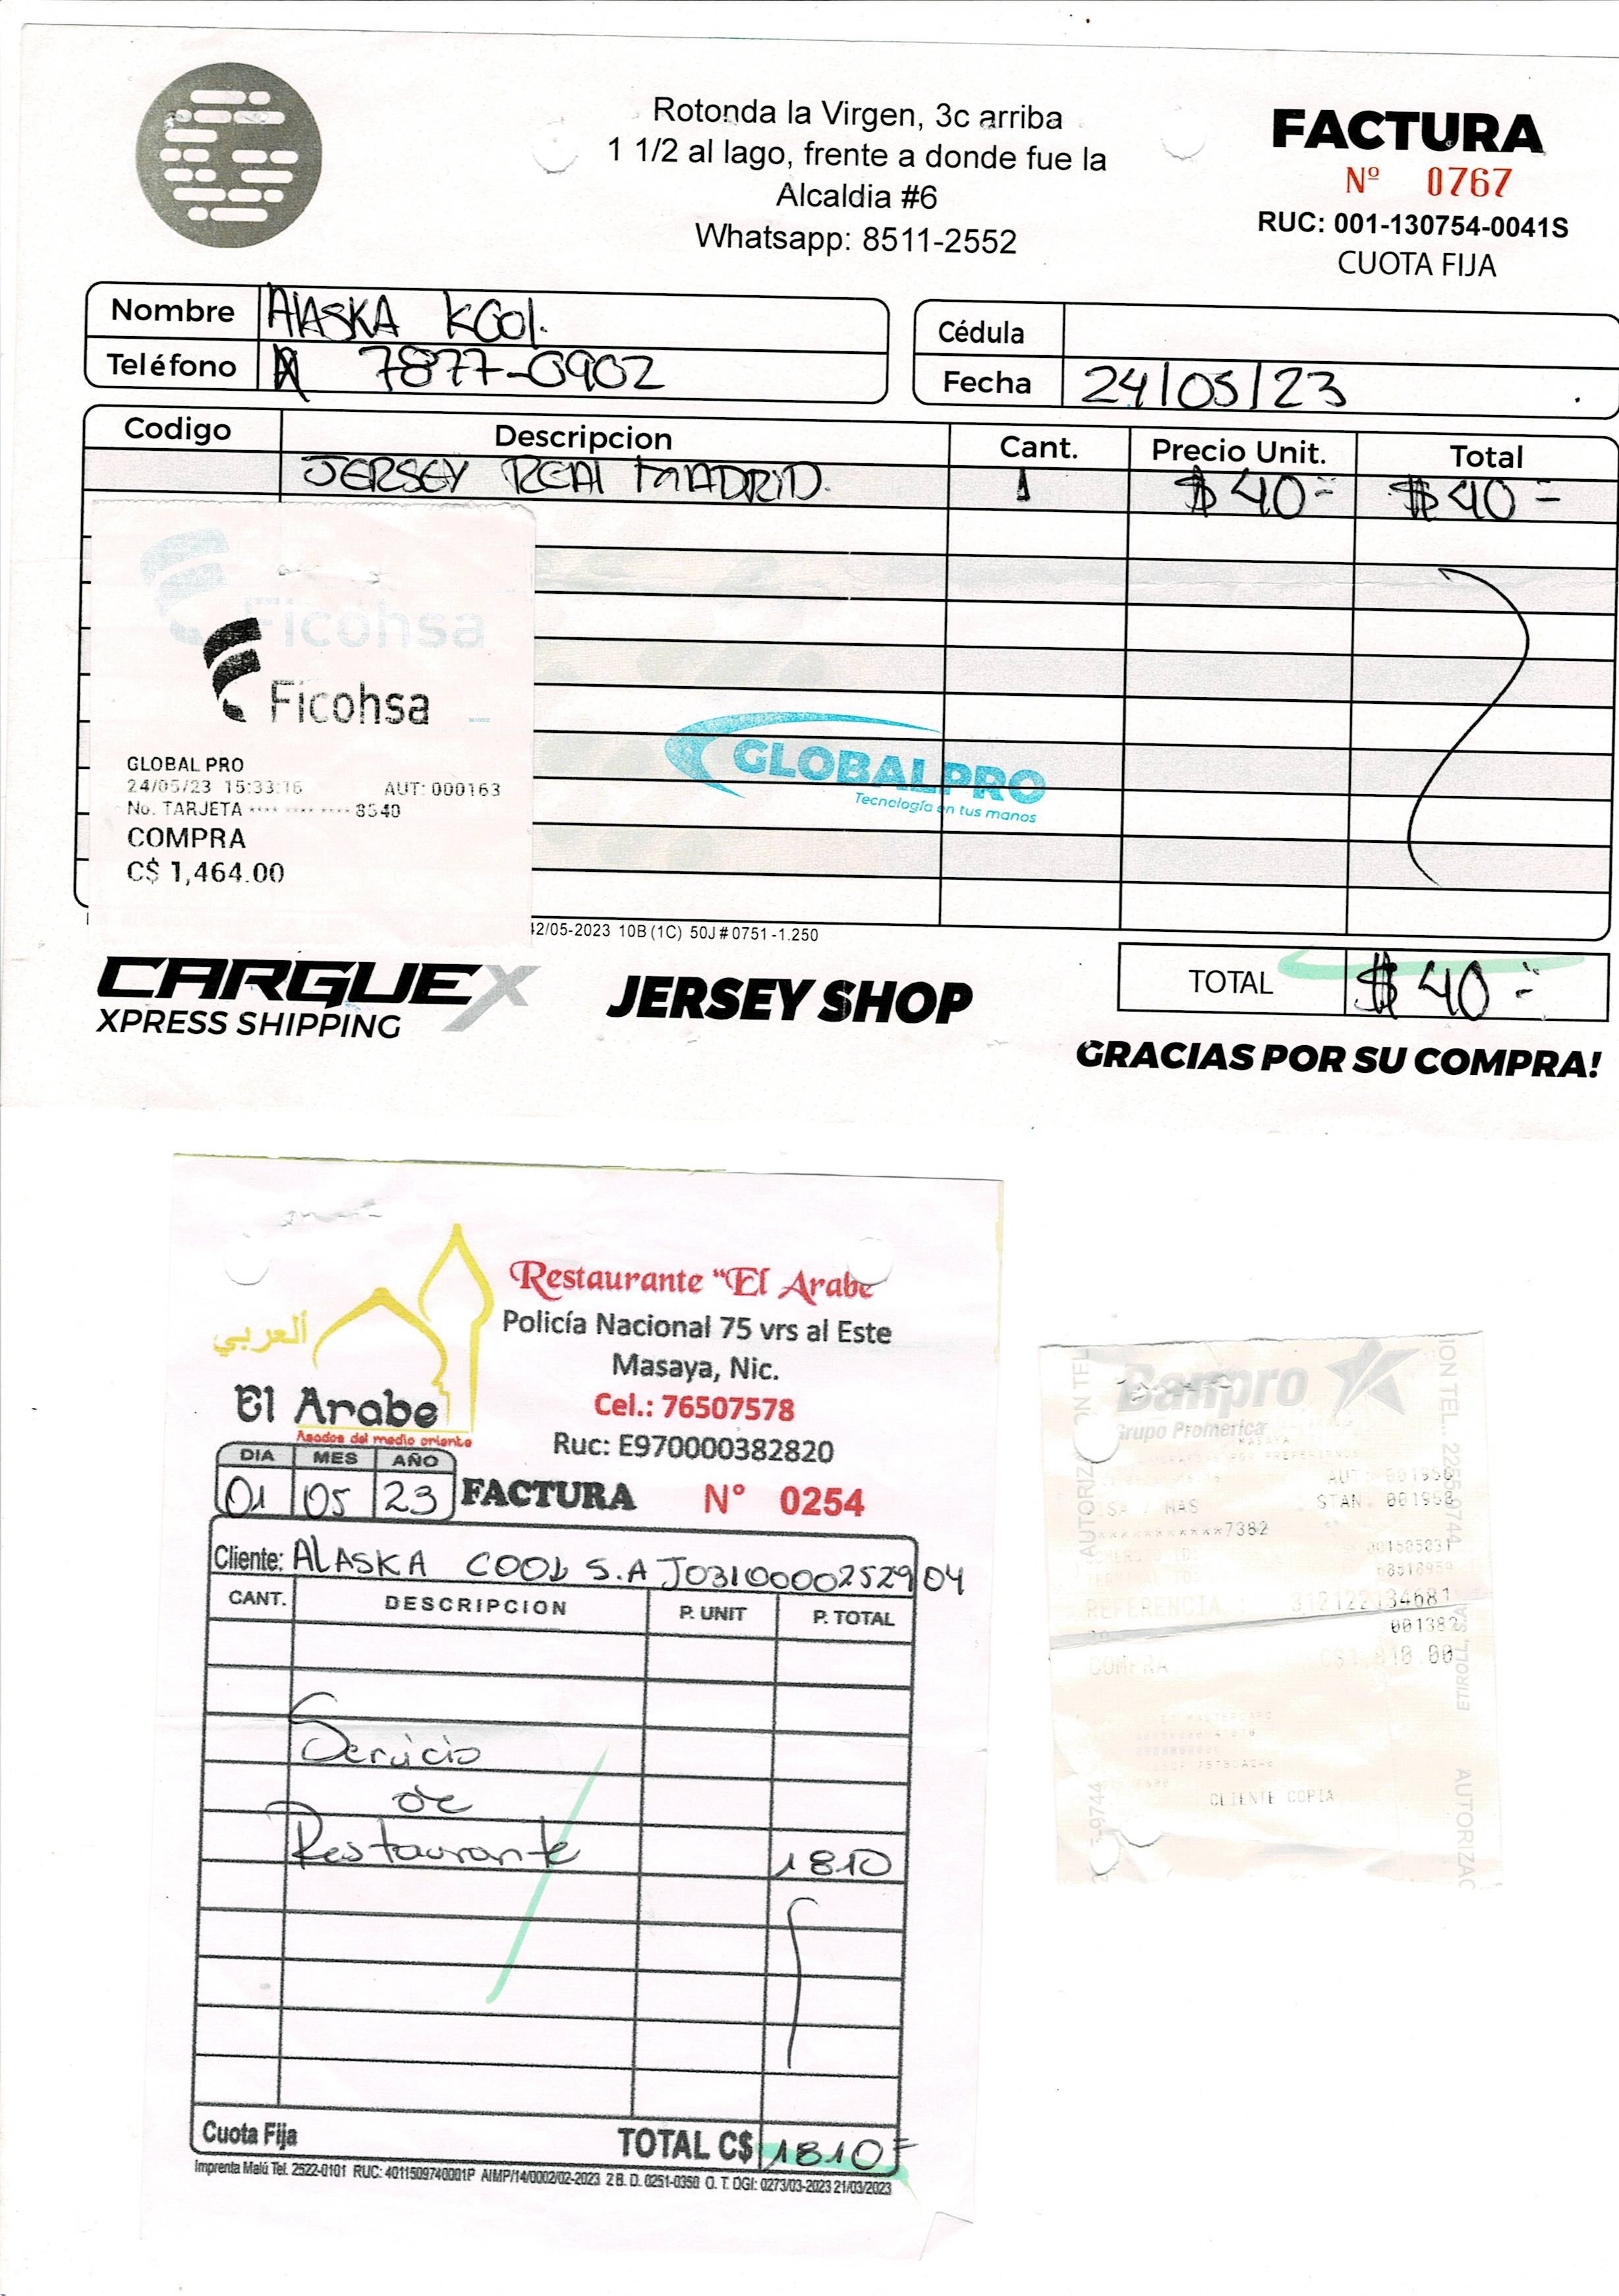 Rotonda la Virgen, 3c arriba
1 1/2 al lago, frente a donde fue la
Alcaldia #6
Whatsapp: 8511-2552
FACTURA
Nº 0767
RUC: 001-130754-0041S
CUOTA FIJA
Nombre ALASKA KOOL.
Teléfono 7877-0902
Cédula
Fecha 24/05/23
Codigo Descripcion Cant. Precio Unit. Total
JERSEY REAL MADRID. 1 $40= $40=
Ficohsa
Ficohsa
GLOBAL PRO
24/05/23 15:33:16 AUT: 000163
No. TARJETA **** **** **** 8540
COMPRA
C$ 1,464.00
GLOBALPRO
Tecnología en tus manos
42/05-2023 10B (1C) 50J # 0751 -1.250
CARGUEX
XPRESS SHIPPING
JERSEY SHOP
TOTAL $40=
GRACIAS POR SU COMPRA!
العربي
El Arabe
Asados del medio oriente
Restaurante "El Arabe
Policía Nacional 75 vrs al Este
Masaya, Nic.
Cel.: 76507578
Ruc: E970000382820
DIA MES AÑO
01 05 23
FACTURA N° 0254
Cliente: ALASKA COOL S.A J0310000252904
CANT. DESCRIPCION P. UNIT P. TOTAL
Servicio
de
Restaurante 1810
Cuota Fija TOTAL C$ 1810=
Imprenta Malú Tel. 2522-0101 RUC: 4011509740001P AIMP/14/0002/02-2023 2 B. D. 0251-0350 O. T. DGI: 0273/03-2023 21/03/2023
Banpro
Grupo Promerica
MASAYA
AUT: 001956
STAN: 001968
************7382
REFERENCIA 312122134681
001382
COMPRA
CLIENTE COPIA
ETIROLL, SA
AUTORIZAC